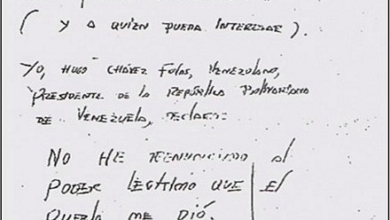 ( Y A QUIEN PUEDA INTERESAR ).
YO, HUGO CHÁVEZ FRÍAS, VENEZOLANO,
PRESIDENTE DE LA REPÚBLICA BOLIVARIANA
DE VENEZUELA, DECLARO:
NO HE RENUNCIADO al
PODER LEGÍTIMO QUE EL
PUEBLO ME DIÓ.